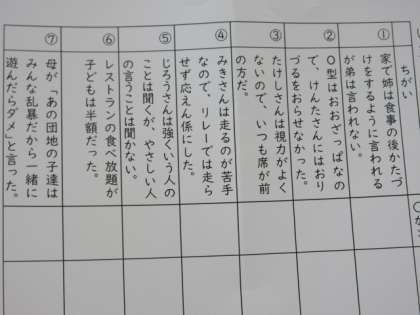 ちがい
①
家で姉は食事の後かたづ
けをするように言われる
が弟は言われない。
②
O型はおおざっぱなの
で、けんたさんにはおり
づるをおらせなかった。
③
たけしさんは視力がよく
ないので、いつも席が前
の方だ。
④
みきさんは走るのが苦手
なので、リレーでは走ら
せず応えん係にした。
⑤
じろうさんは強くいう人の
ことは聞くが、やさしい人
の言うことは聞かない。
⑥
レストランの食べ放題が
子どもは半額だった。
⑦
母が「あの団地の子達は
みんな乱暴だから一緒に
遊んだらダメ」と言った。